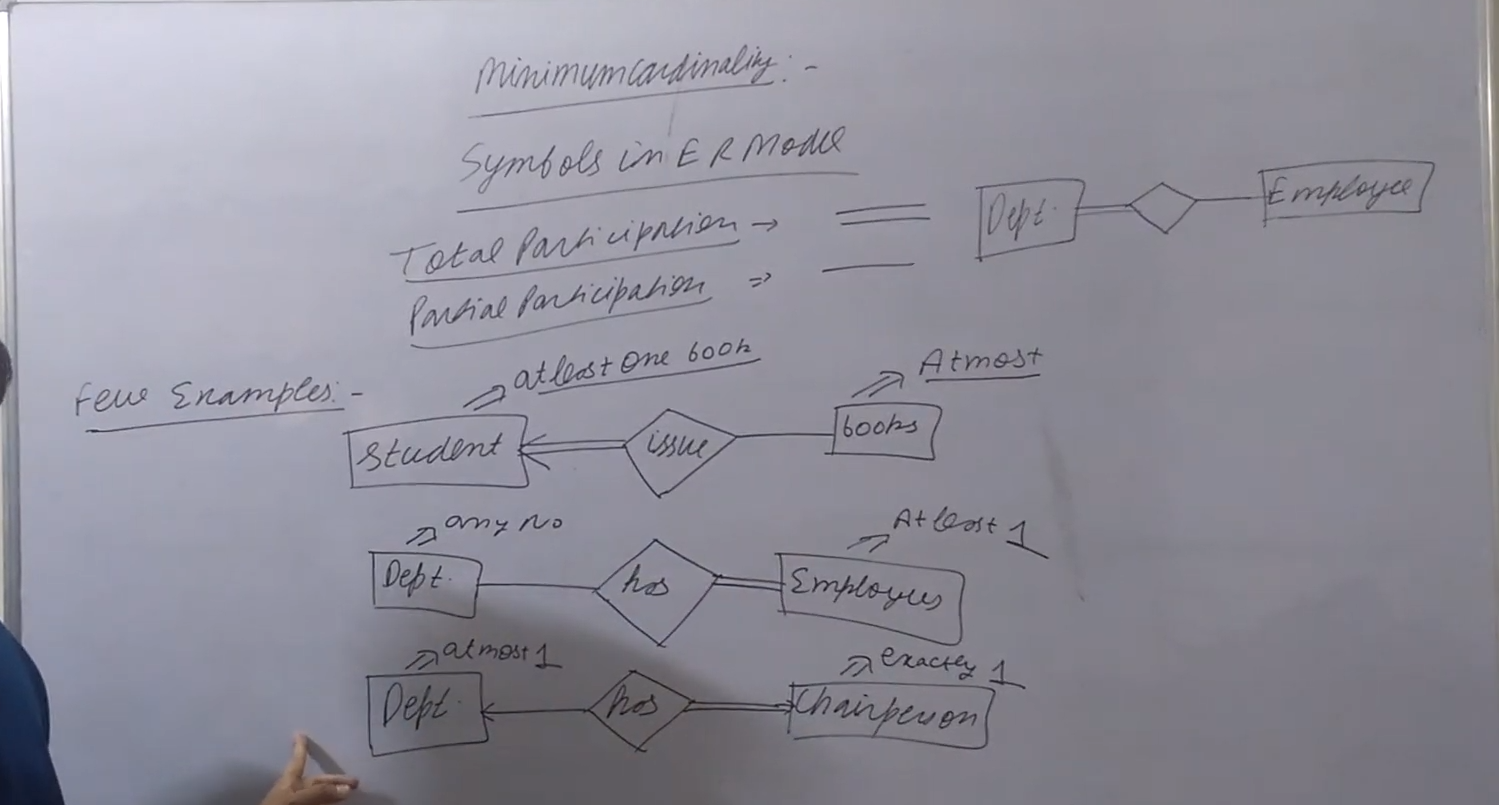 Minimum Cardinality:-
Symbols in ER Model
Total Participation →
Dept. Employee
Partial Participation ⇒
Few Examples:-
at least one book
Atmost
Student issue books
any no
At least 1
Dept. has Employees
atmost 1
exactly 1
Dept. has Chairperson